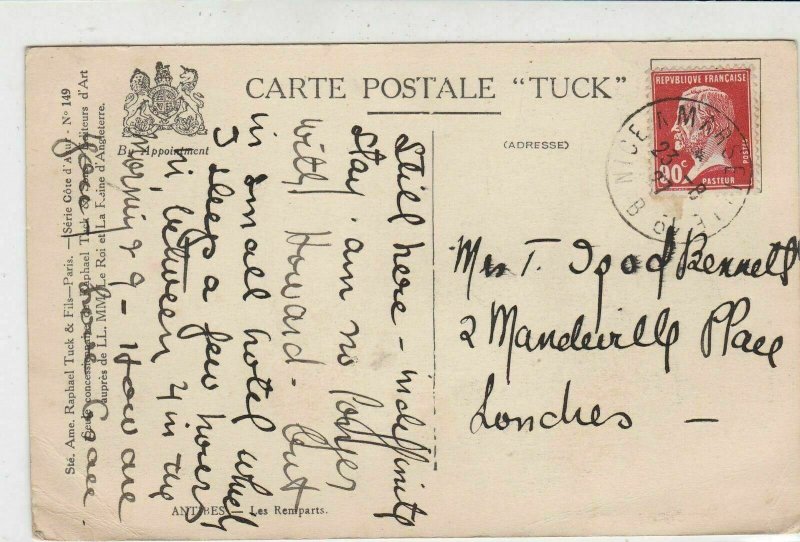 CARTE POSTALE "TUCK"
By Appointment
(ADRESSE)
REPVBLIQUE FRANÇAISE
POSTES
90c
PASTEUR
NICE A MARSEILLE
23
B
Still here – indefinite
stay. am no longer
with Howard. but
in small hotel where
I sleep a few hours
in, between 4 in the
morning & 9 – How are
Mrs T. Izod Bennett
2 Mandeville Place
Londres –
Sté. Ame. Raphael Tuck & Fils—Paris. — Série Côte d'Azur - No 149
Seuls concessionnaires de Raphael Tuck & Sons, Editeurs d'Art
auprès de LL. MM. Le Roi et La Reine d'Angleterre.
ANTIBES — Les Remparts.